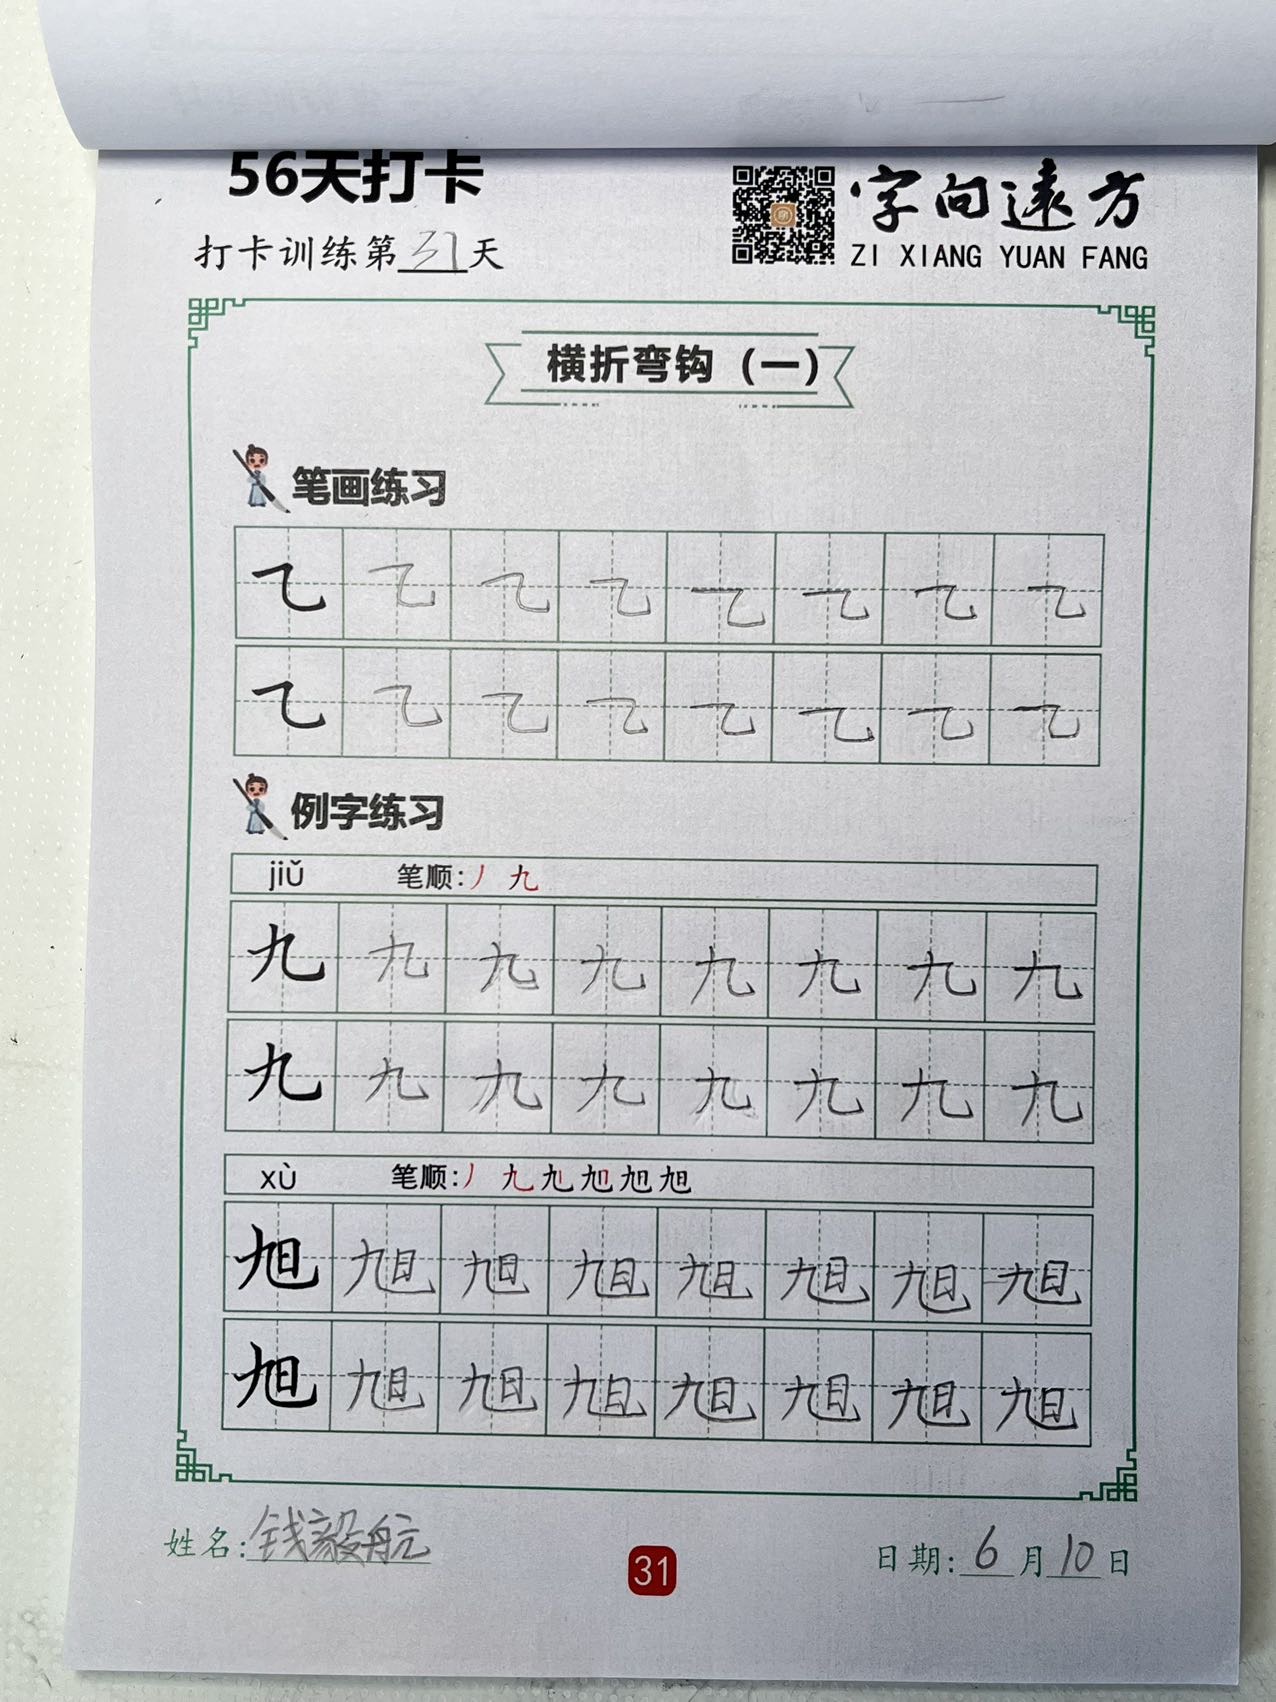 56天打卡
字向远方
打卡训练第31天
ZI XIANG YUAN FANG
横折弯钩（一）
笔画练习
乙 乙 乙 乙 乙 乙 乙 乙
乙 乙 乙 乙 乙 乙 乙 乙
例字练习
jiǔ 笔顺：丿 九
九 九 九 九 九 九 九 九
九 九 九 九 九 九 九 九
xù 笔顺：丿 九 旭 旭 旭 旭
旭 旭 旭 旭 旭 旭 旭 旭
旭 旭 旭 旭 旭 旭 旭 旭
姓名：钱毅航
31
日期：6月10日